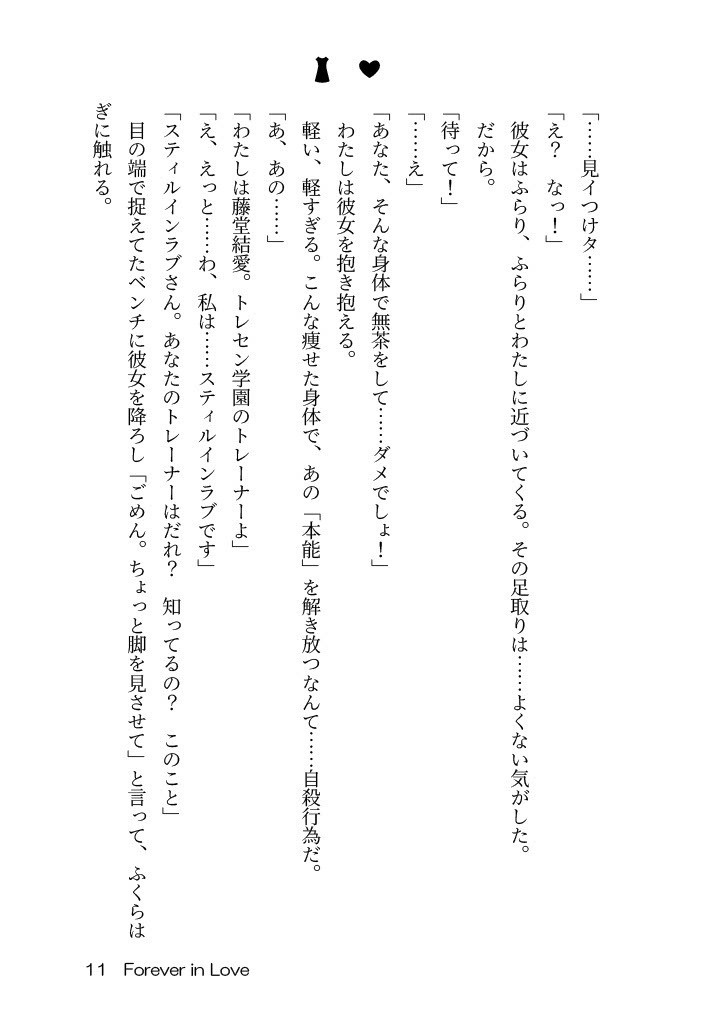 「……見イつけタ……」
「え？　なっ！」
　彼女はふらり、ふらりとわたしに近づいてくる。その足取りは……よくない気がした。
　だから。
「待って！」
「……え」
「あなた、そんな身体で無茶をして……ダメでしょ！」
　わたしは彼女を抱き抱える。
　軽い、軽すぎる。こんな痩せた身体で、あの「本能」を解き放つなんて……自殺行為だ。
「あ、あの……」
「わたしは藤堂結愛。トレセン学園のトレーナーよ」
「え、えっと……わ、私は……スティルインラブです」
「スティルインラブさん。あなたのトレーナーはだれ？　知ってるの？　このこと」
　目の端で捉えてたベンチに彼女を降ろし「ごめん。ちょっと脚を見させて」と言って、ふくらは
ぎに触れる。
11　Forever in Love